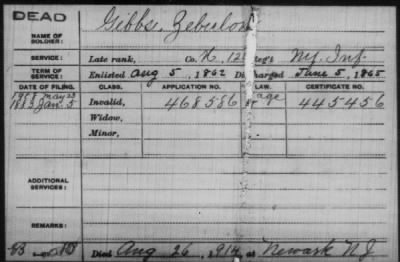 DEAD
NAME OF SOLDIER: Gibbs, Zebulon
SERVICE: Late rank, Co. H, 12 Reg't N.J. Inf.
TERM OF SERVICE: Enlisted Aug 5, 1862 Discharged June 5, 1865
DATE OF FILING. CLASS. APPLICATION NO. LAW. CERTIFICATE NO.
May 23
1883 Jan. 5 Invalid, 468586 age 445456
Widow,
Minor,
ADDITIONAL SERVICES:
REMARKS:
Died Aug 26, 1914 at Newark N.J.